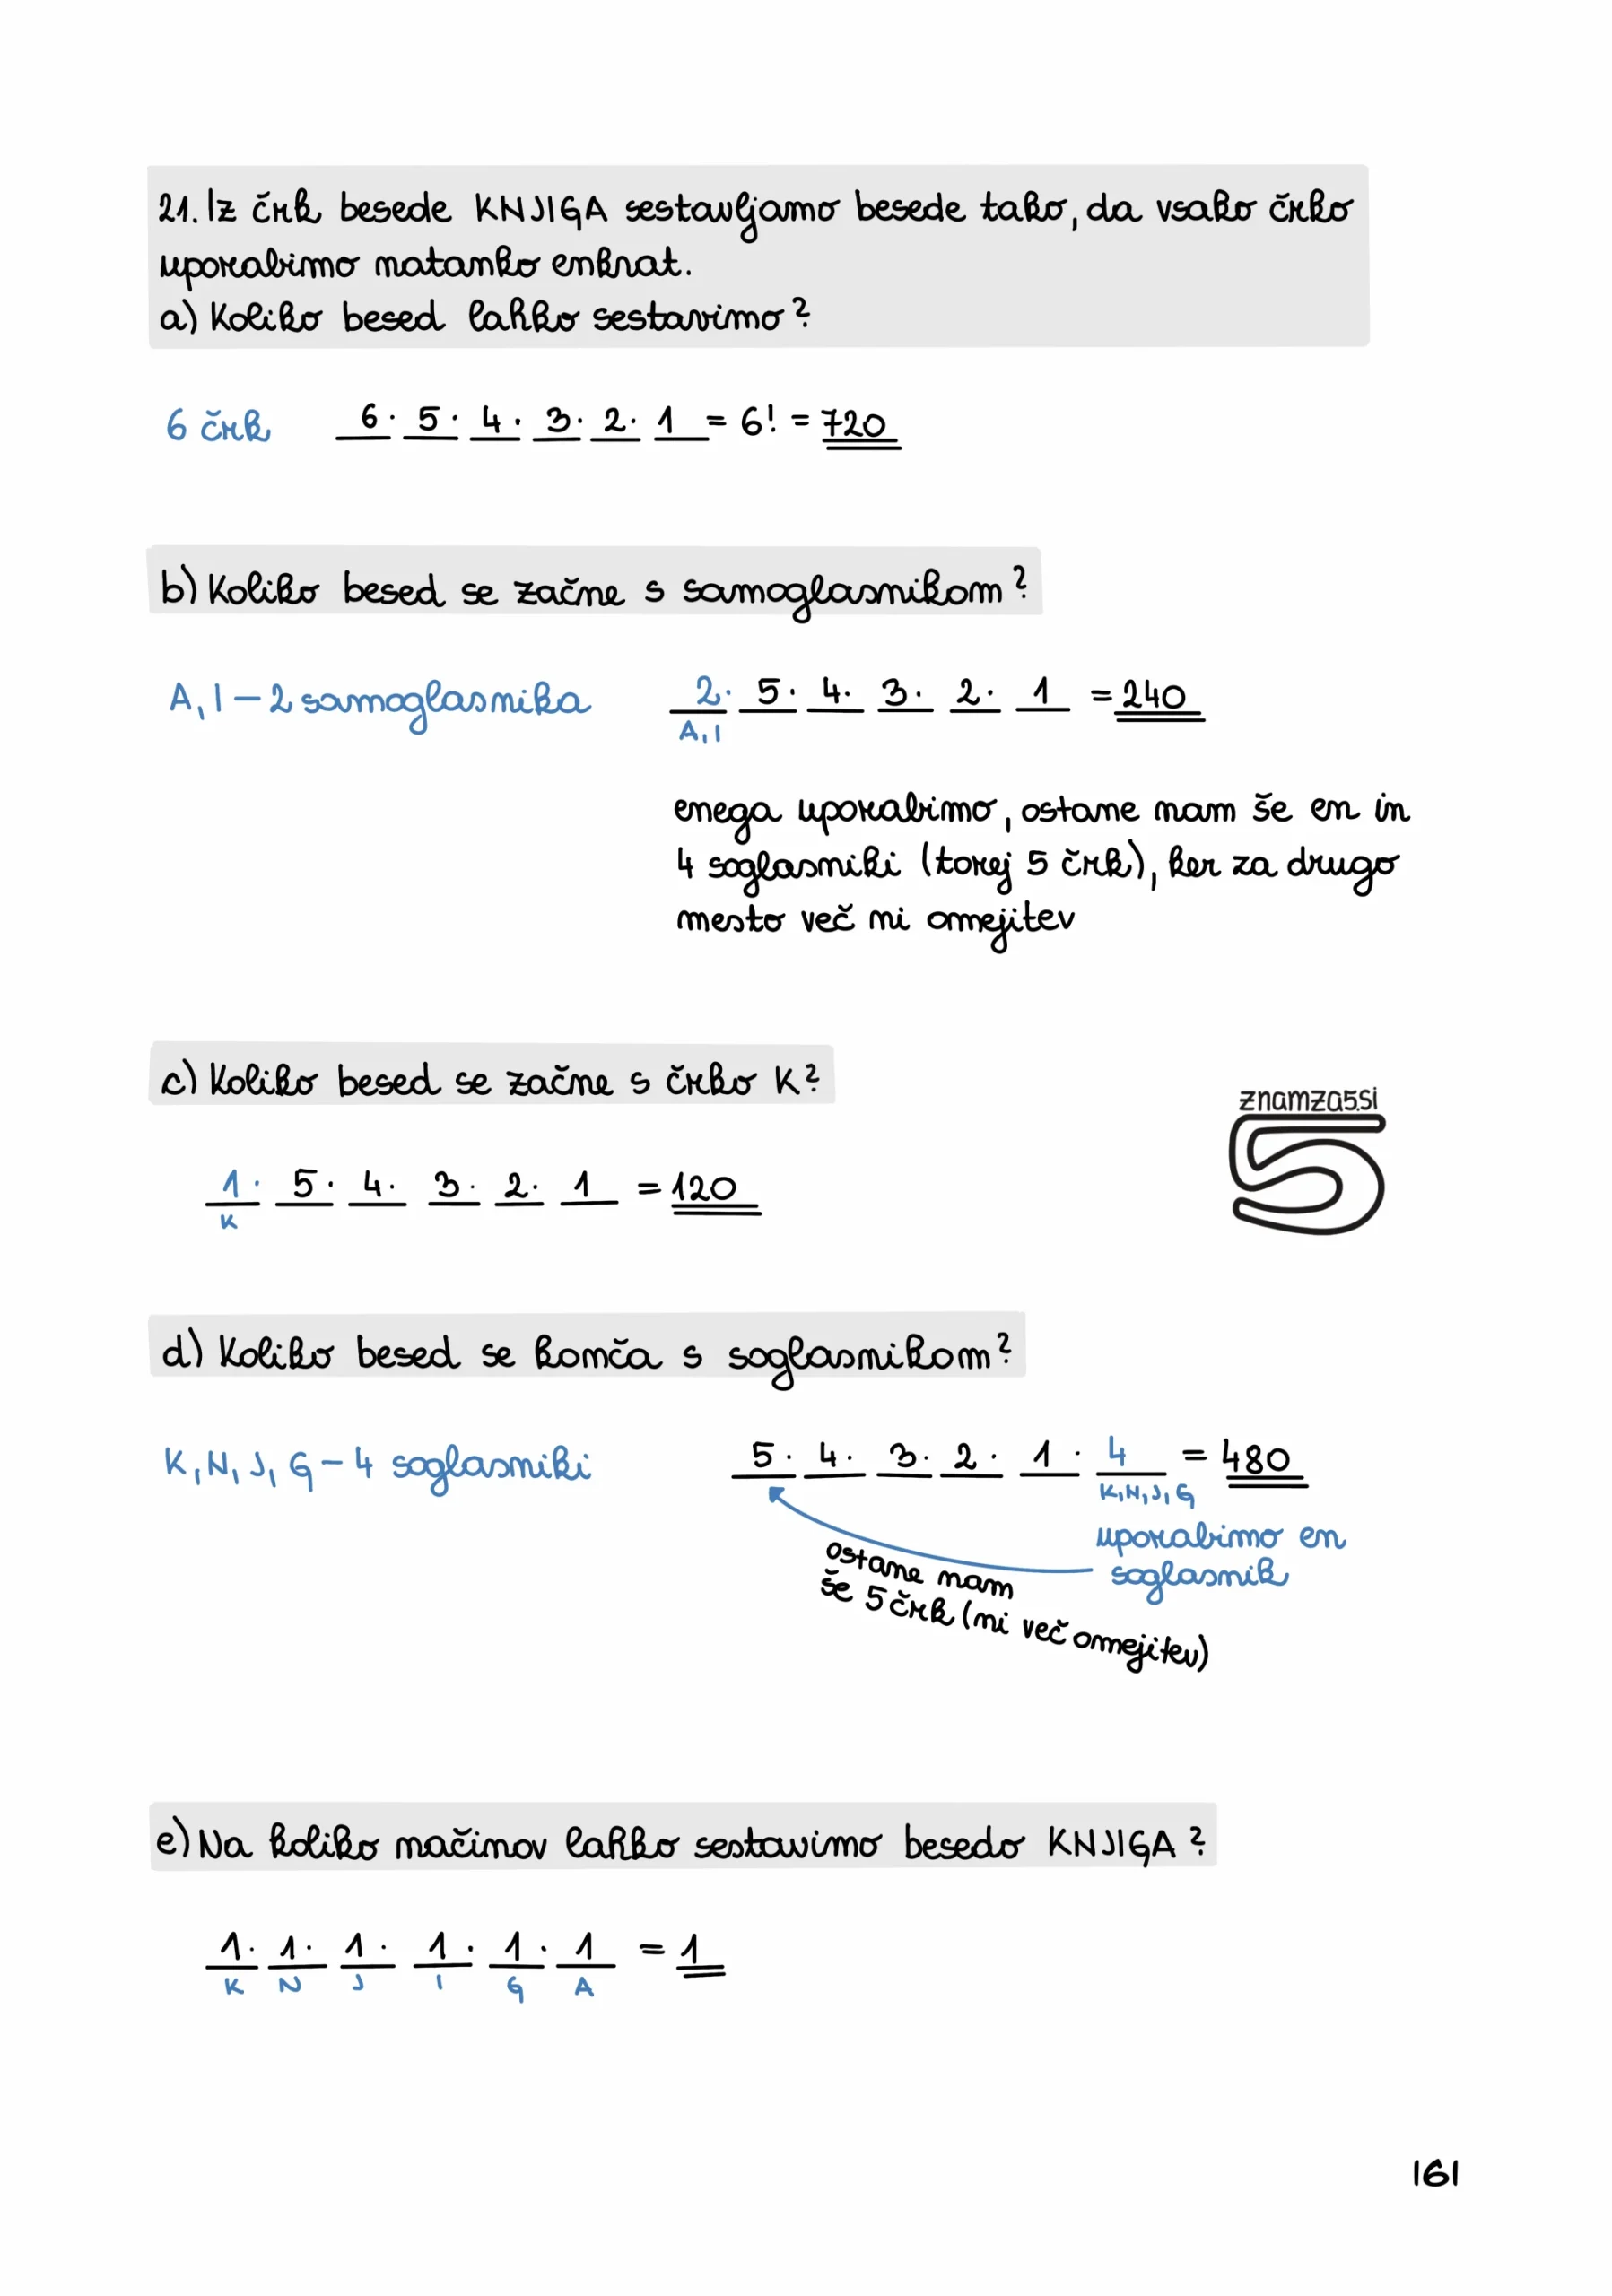 21. Iz črk besede KNJIGA sestavljamo besede tako, da vsako črko
uporabimo natanko enkrat.
a) Koliko besed lahko sestavimo?
6 črk 6 · 5 · 4 · 3 · 2 · 1 = 6! = 720
b) Koliko besed se začne s samoglasnikom?
A, I – 2 samoglasnika 2 · 5 · 4 · 3 · 2 · 1 = 240
A, I
enega uporabimo, ostane nam še en in
4 soglasniki (torej 5 črk), ker za drugo
mesto več ni omejitev
c) Koliko besed se začne s črko K?
znamza5.si
5
1 · 5 · 4 · 3 · 2 · 1 = 120
K
d) Koliko besed se konča s soglasnikom?
K, N, J, G – 4 soglasniki 5 · 4 · 3 · 2 · 1 · 4 = 480
K, N, J, G
uporabimo en
soglasnik
ostane nam
še 5 črk (ni več omejitev)
e) Na koliko načinov lahko sestavimo besedo KNJIGA?
1 · 1 · 1 · 1 · 1 · 1 = 1
K N J I G A
161